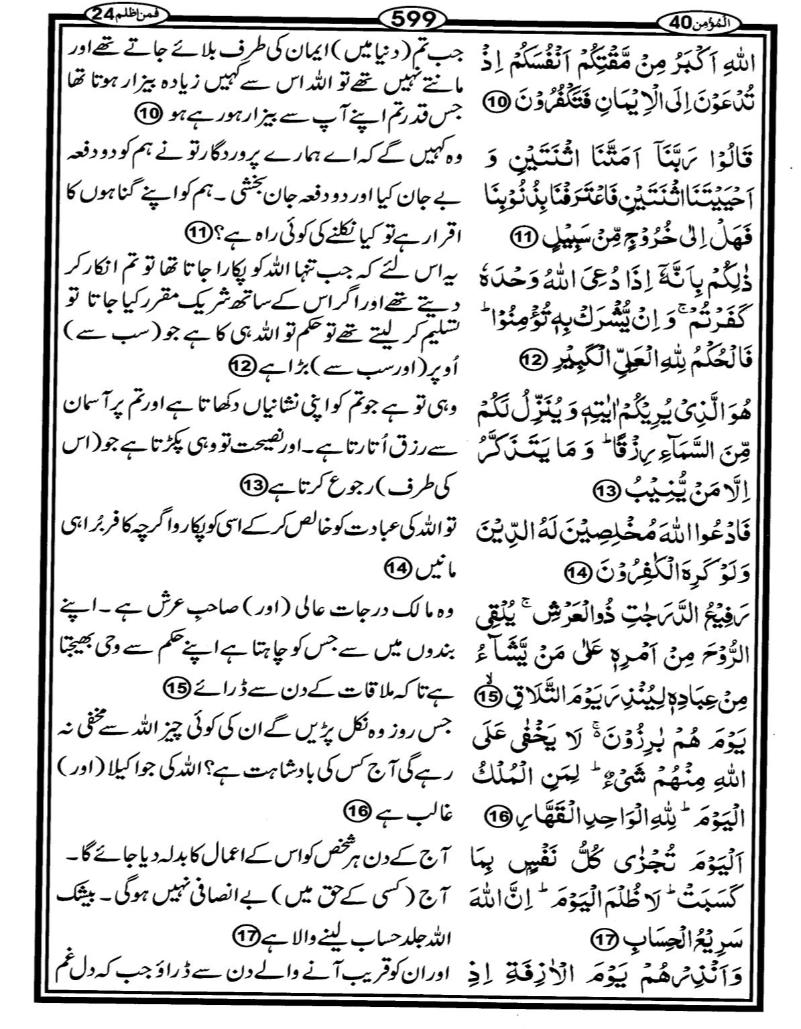 المؤمن 40
599
فمن اظلم 24
اللّٰهِ اَكْبَرُ مِنْ مَّقْتِكُمْ اَنْفُسَكُمْ اِذْ
تُدْعَوْنَ اِلَى الْاِيْمَانِ فَتَكْفُرُوْنَ ⑩
قَالُوْا رَبَّنَآ اَمَتَّنَا اثْنَتَيْنِ وَ
اَحْيَيْتَنَا اثْنَتَيْنِ فَاعْتَرَفْنَا بِذُنُوْبِنَا
فَهَلْ اِلٰى خُرُوْجٍ مِّنْ سَبِيْلٍ ⑪
ذٰلِكُمْ بِاَنَّهٗۤ اِذَا دُعِيَ اللّٰهُ وَحْدَهٗ
كَفَرْتُمْ ۚ وَ اِنْ يُّشْرَكْ بِهٖ تُؤْمِنُوْا ؕ
فَالْحُكْمُ لِلّٰهِ الْعَلِيِّ الْكَبِيْرِ ⑫
هُوَ الَّذِيْ يُرِيْكُمْ اٰيٰتِهٖ وَ يُنَزِّلُ لَكُمْ
مِّنَ السَّمَآءِ رِزْقًا ؕ وَ مَا يَتَذَكَّرُ
اِلَّا مَنْ يُّنِيْبُ ⑬
فَادْعُوا اللّٰهَ مُخْلِصِيْنَ لَهُ الدِّيْنَ
وَ لَوْ كَرِهَ الْكٰفِرُوْنَ ⑭
رَفِيْعُ الدَّرَجٰتِ ذُو الْعَرْشِ ۚ يُلْقِي
الرُّوْحَ مِنْ اَمْرِهٖ عَلٰى مَنْ يَّشَآءُ
مِنْ عِبَادِهٖ لِيُنْذِرَ يَوْمَ التَّلَاقِ ۙ ⑮
يَوْمَ هُمْ بٰرِزُوْنَ ۚ لَا يَخْفٰى عَلَى
اللّٰهِ مِنْهُمْ شَيْءٌ ؕ لِمَنِ الْمُلْكُ
الْيَوْمَ ؕ لِلّٰهِ الْوَاحِدِ الْقَهَّارِ ⑯
اَلْيَوْمَ تُجْزٰى كُلُّ نَفْسٍ بِمَا
كَسَبَتْ ؕ لَا ظُلْمَ الْيَوْمَ ؕ اِنَّ اللّٰهَ
سَرِيْعُ الْحِسَابِ ⑰
وَ اَنْذِرْهُمْ يَوْمَ الْاٰزِفَةِ اِذِ
جب تم (دنیا میں) ایمان کی طرف بلائے جاتے تھے اور
مانتے نہیں تھے تو اللہ اس سے کہیں زیادہ بیزار ہوتا تھا
جس قدر تم اپنے آپ سے بیزار ہو رہے ہو ⑩
وہ کہیں گے کہ اے ہمارے پروردگار تو نے ہم کو دو دفعہ
بے جان کیا اور دو دفعہ جان بخشی ۔ ہم کو اپنے گناہوں کا
اقرار ہے تو کیا نکلنے کی کوئی راہ ہے؟ ⑪
یہ اس لئے کہ جب تنہا اللہ کو پکارا جاتا تھا تو تم انکار کر
دیتے تھے اور اگر اس کے ساتھ شریک مقرر کیا جاتا تو
تسلیم کر لیتے تھے تو حکم تو اللہ ہی کا ہے جو (سب سے)
اُوپر (اور سب سے) بڑا ہے ⑫
وہی تو ہے جو تم کو اپنی نشانیاں دکھاتا ہے اور تم پر آسمان
سے رزق اُتارتا ہے ۔ اور نصیحت تو وہی پکڑتا ہے جو (اس
کی طرف) رجوع کرتا ہے ⑬
تو اللہ کی عبادت کو خالص کر کے اسی کو پکارو اگرچہ کافر بُرا ہی
مانیں ⑭
وہ مالک درجات عالی (اور) صاحبِ عرش ہے ۔ اپنے
بندوں میں سے جس کو چاہتا ہے اپنے حکم سے وحی بھیجتا
ہے تاکہ ملاقات کے دن سے ڈرائے ⑮
جس روز وہ نکل پڑیں گے ان کی کوئی چیز اللہ سے مخفی نہ
رہے گی آج کس کی بادشاہت ہے؟ اللہ کی جو اکیلا (اور)
غالب ہے ⑯
آج کے دن ہر شخص کو اس کے اعمال کا بدلہ دیا جائے گا ۔
آج (کسی کے حق میں) بے انصافی نہیں ہو گی ۔ بیشک
اللہ جلد حساب لینے والا ہے ⑰
اور ان کو قریب آنے والے دن سے ڈراؤ جب کہ دل غم